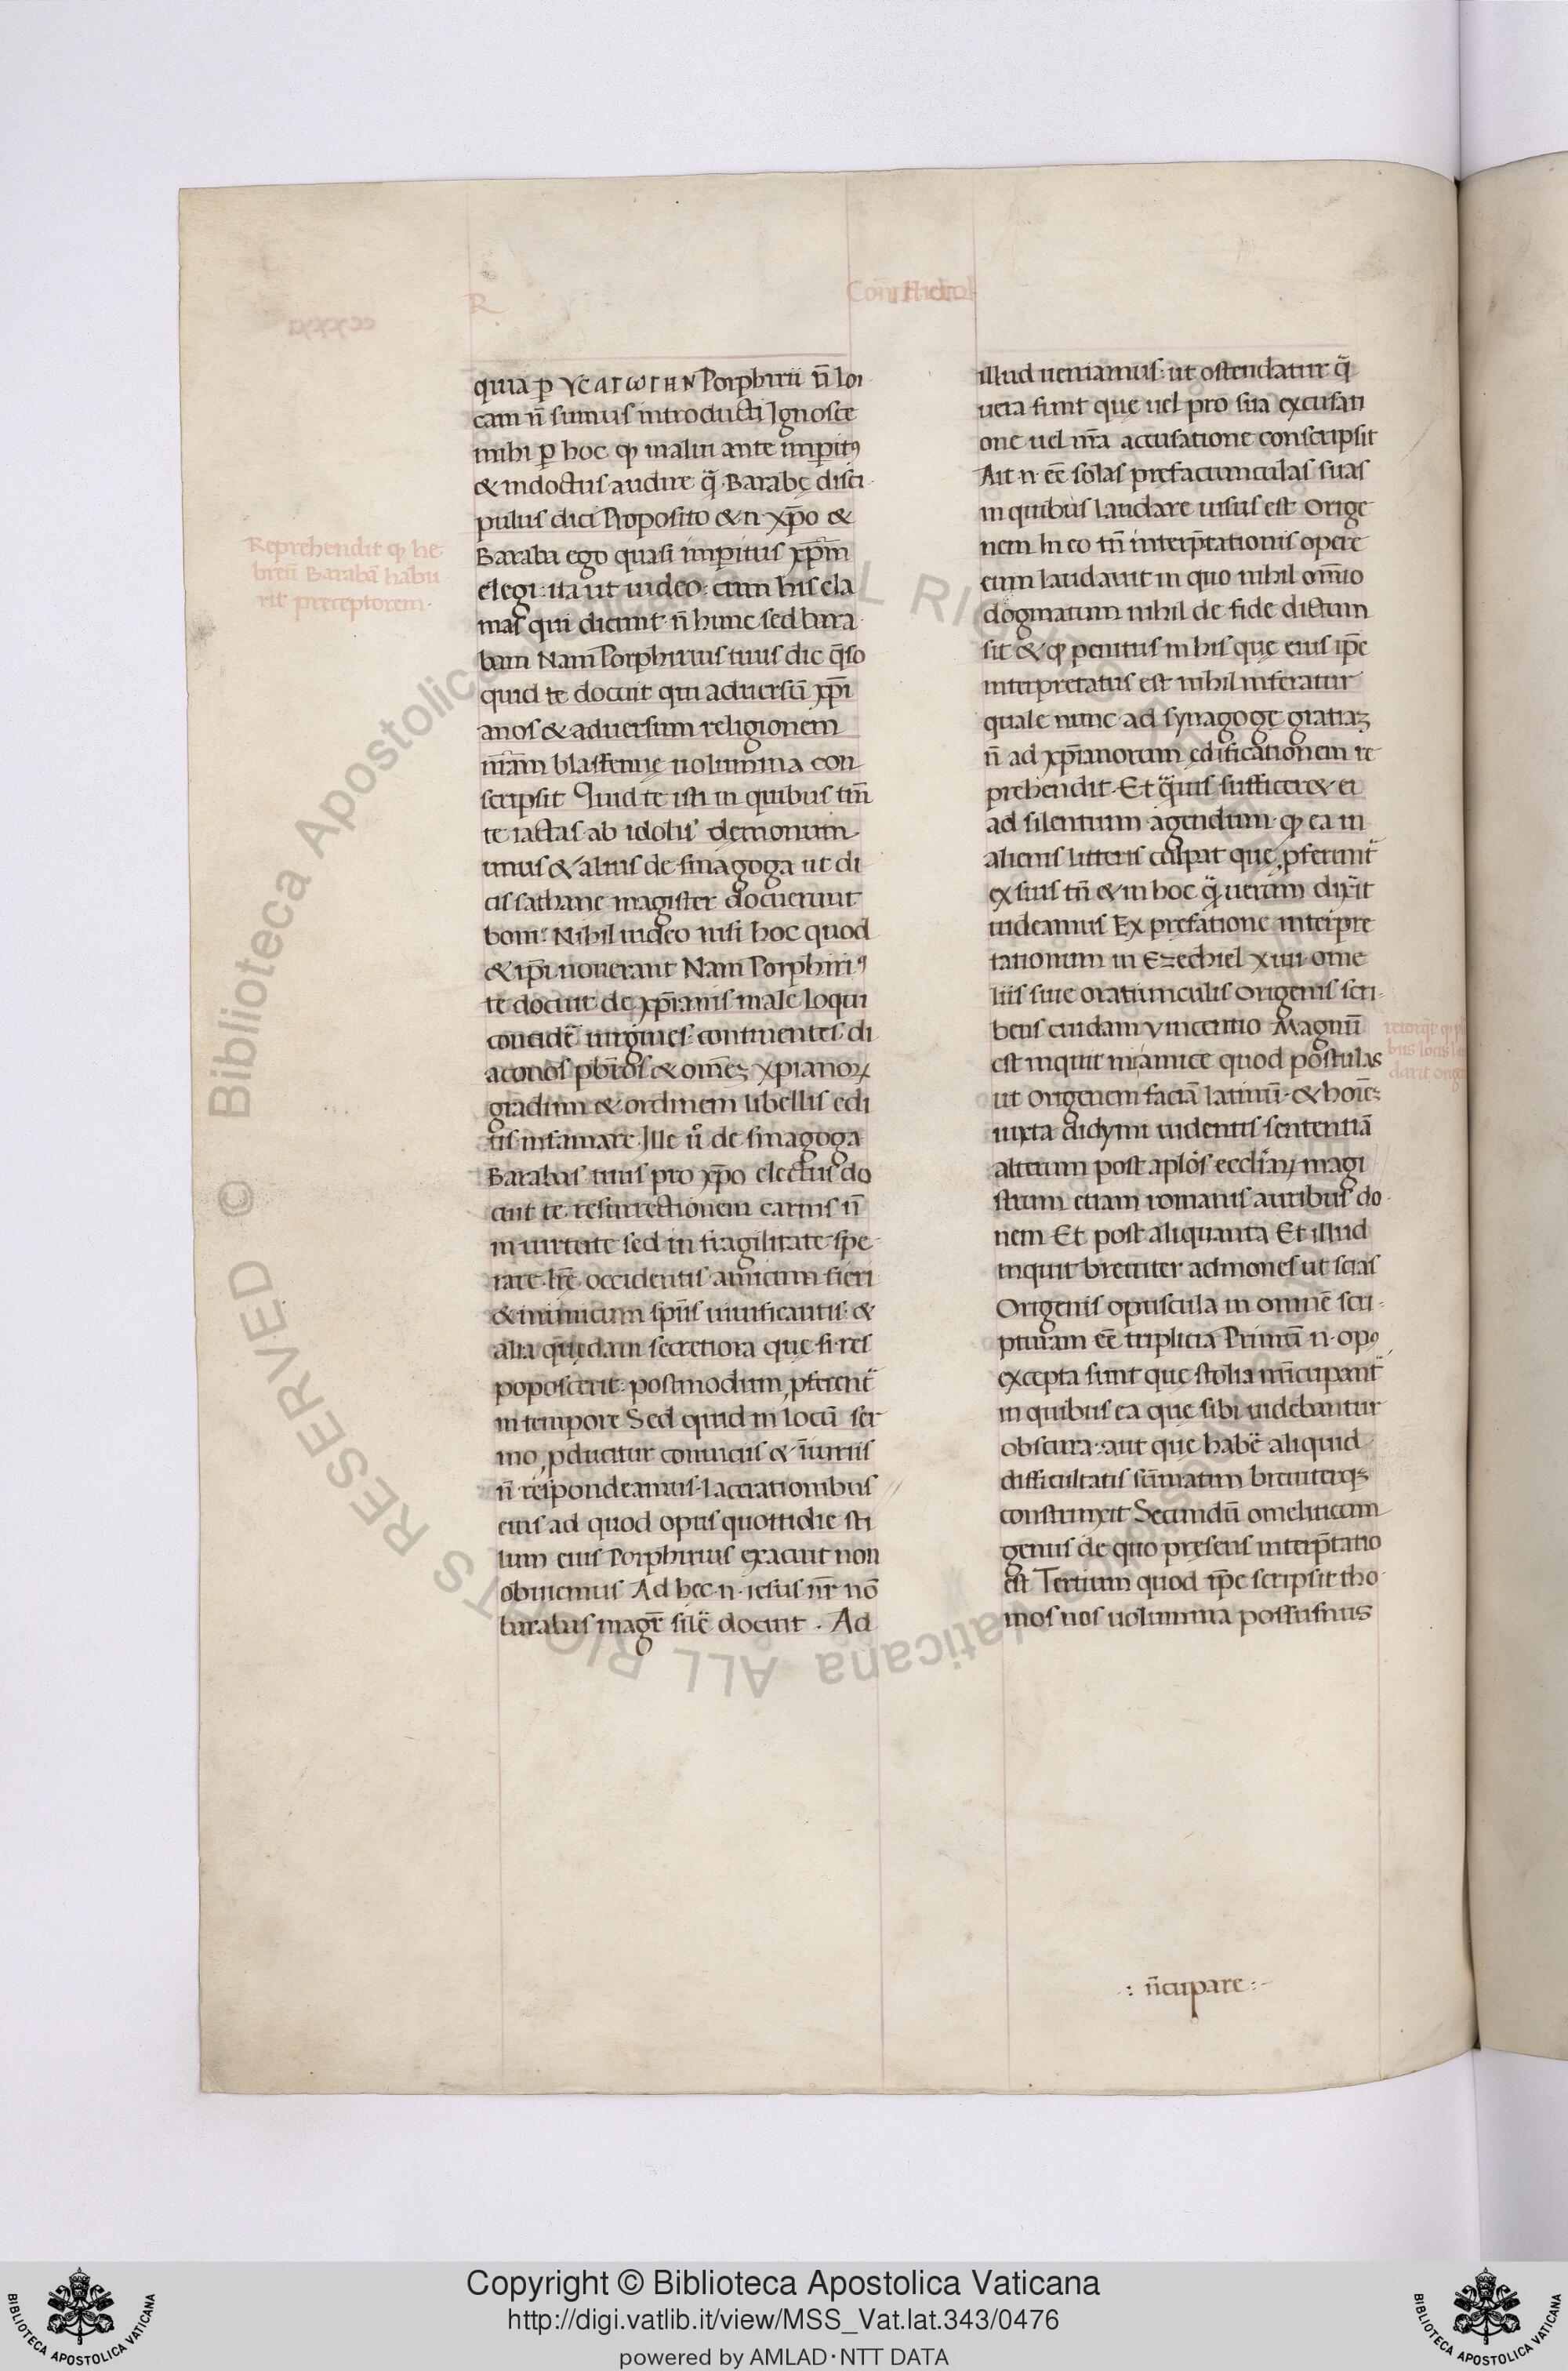 R
quia ꝑ ꝩcaгωгhn Porphirii n̄ loi
cam n̄ sumus introducti Ignosce
mihi ꝑ hoc ꝙ malui ante impitꝰ
& indoctus audire q̄ Barabę disci
pulus dici Proposito & n xp̄o &
Baraba ego quasi imperitus xp̄m
elegi: ita ut uideo: cum his cla
mas qui dicunt n̄ hunc sed bara
bam Nam Porphirius tuus dic q̄so
quid te docuit qui aduersū xp̄i
anos & aduersum religionem
nr̄am blasfemię uolumina con
scripsit Quid te isti in quibus tm̄
te iactas ab idolis demonum
unus & alius de sinagoga ut di
cis sathanę magister docuerunt
boni: Nihil uideo nisi hoc quod
& ip̄i nouerant Nam Porphiriꝰ
te docuit de xp̄ianis male loqui
concidē uirgines continentes di
aconos pb̄ros & om̄eꝫ xpianoꝝ
gradum & ordinem libellis edi
tis infamare Ille ů de sinagoga
Barabas tuus pro xp̄o electus do
cuit te resurrectionem carnis n̄
in uirtute sed in fragilitate spe
rare lr̄ę occidentis amicum fieri
& inimicum sp̄us uiuificantis &
alia quędam secretiora quę si res
poposcerit: postmodum ꝓferent̄
in tempore Sed quid in locū ser
mo ꝓducitur conuiciis & iniuriis
n̄ respondeamus lacerationibus
eius ad quod opus quottidie sti
lum eius Porphirius exacuit non
obuiemus Ad hęc n iesus nr̄ nō
barabas magr̄ silē docuit . Ad
Reprehendit ꝙ he
breū Barabā habu
rit preceptorem
illud ueniamus: ut ostendatur q̄
uera sunt quę uel pro sua excusati
one uel nr̄a accusatione conscripsit
Ait n ee̅ solas prefaciunculas suas
in quibus laudare uisus est Orige
nem In eo tn̄ interp̄tationis opere
eum laudauit in quo nihil om̄io
dogmatum nihil de fide dictum
sit & ꝙ penitus in his quę eius ip̄e
interpretatus est nihil inferatur
quale nunc ad synagogę gratiaꝫ
n̄ ad xp̄ianorum ędificationem re
prehendit Et q̄uis sufficeret ei
ad silentium agendum ꝙ ea in
alienis litteris culpat quę ꝓferunt̄
ex suis tn̄ & in hoc q̄ uerum dixit
uideamus Ex prefatione interpre
tationum in Ezechiel xiiii ome
liis siue oratiunculis Origenis scri
bens cuidam Vincentio Magnū
est inquit mi amice quod postulas
ut Origenem faciā latinū & hoīeꝫ
iuxta didymi uidentis sententiā
alterum post aplōs eccl̄iaꝝ magi
strum etiam romanis auribus do
nem Et post aliquanta Et illud
inquit breuiter admones ut scias
Origenis opuscula in omnē scri
pturam ee̅ triplicia Primū n opꝰ
excepta sunt quę scolia nūcupant̄
in quibus ea quę sibi uidebantur
obscura: aut quę habē aliquid
difficultatis sūmatim breuiterqꝫ
constrinxit Secundū omeliticum
genus de quo presens interp̄tatio
est Tertium quod ip̄e scripsit tho
mos nos uolumina possumus
: n̄cupare :
Copyright © Biblioteca Apostolica Vaticana
http://digi.vatlib.it/view/MSS_Vat.lat.343/0476
powered by AMLAD·NTT DATA
BIBLIOTECA APOSTOLICA VATICANA
BIBLIOTECA APOSTOLICA VATICANA
© Biblioteca Apostolica Vaticana ALL RIGHTS RESERVED